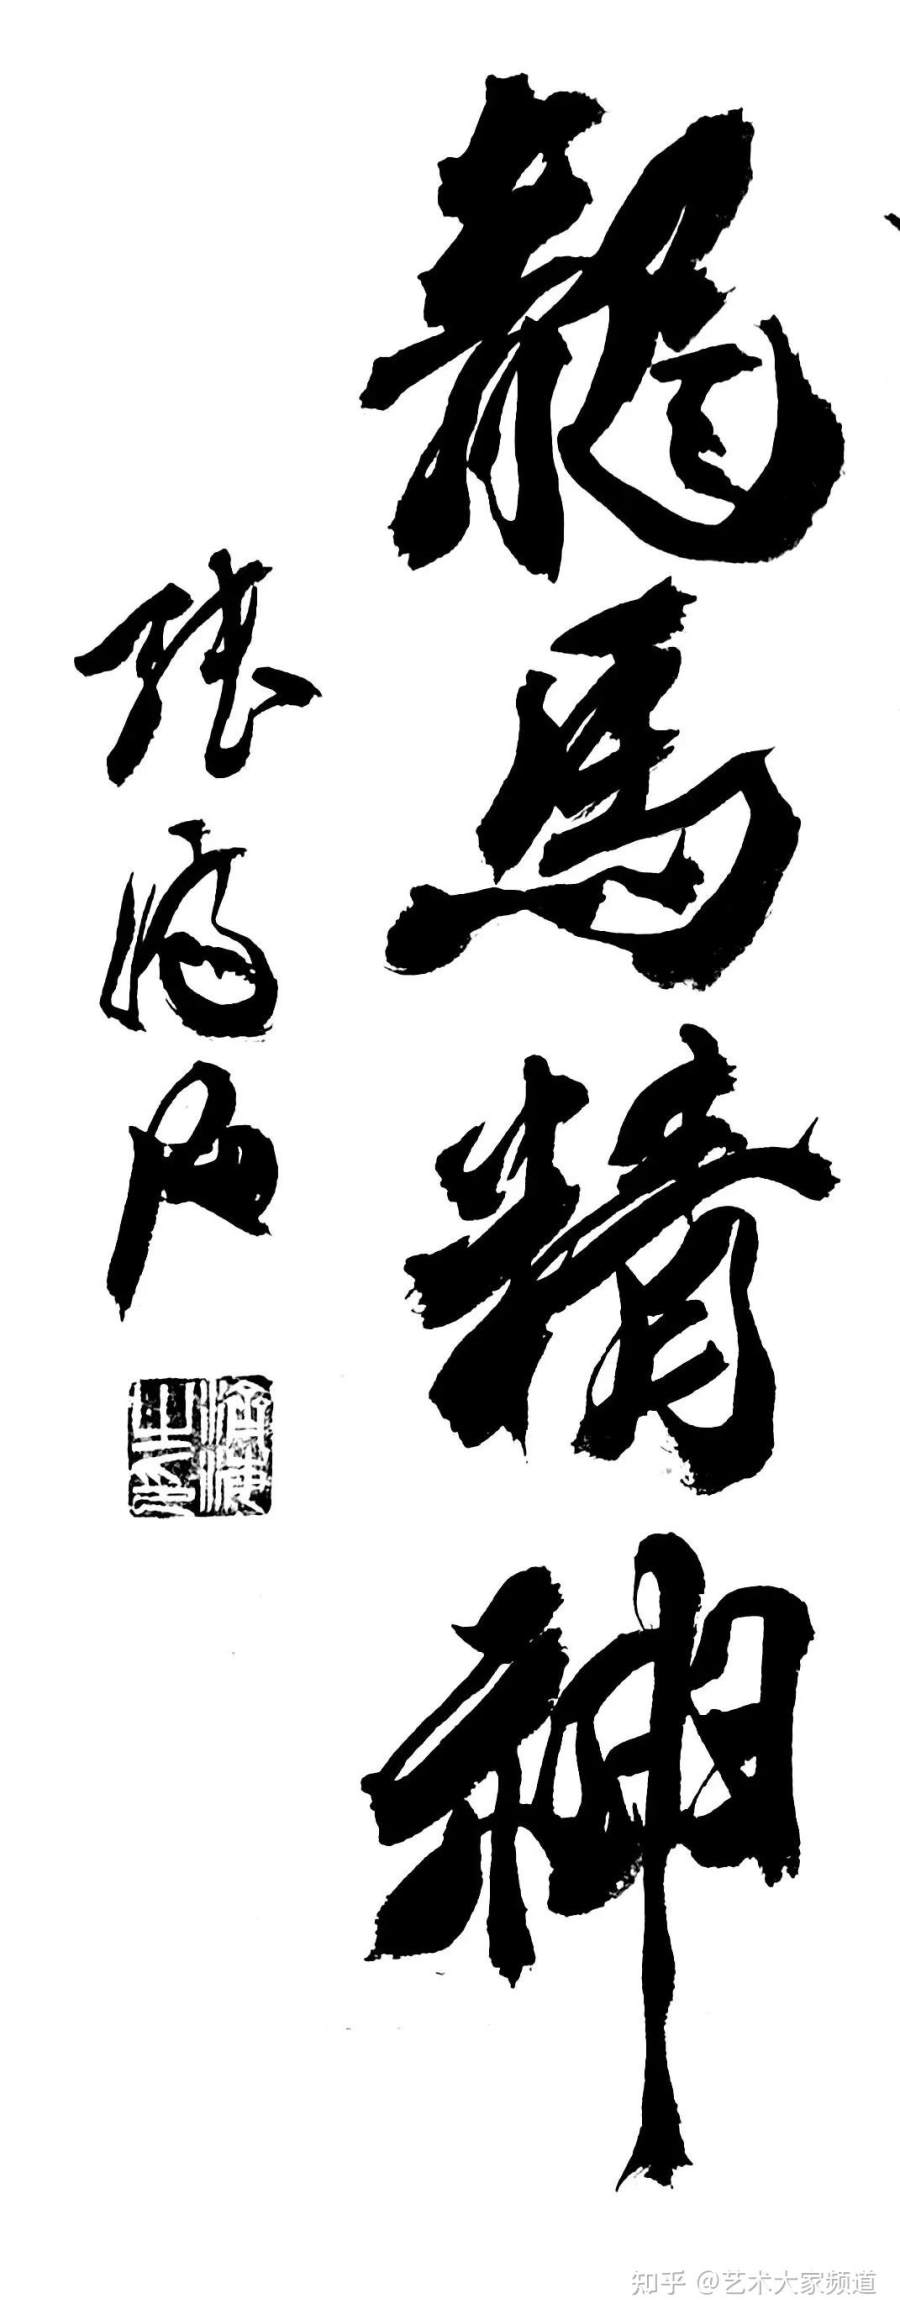 龍馬精神
張
知乎 @艺术大家频道